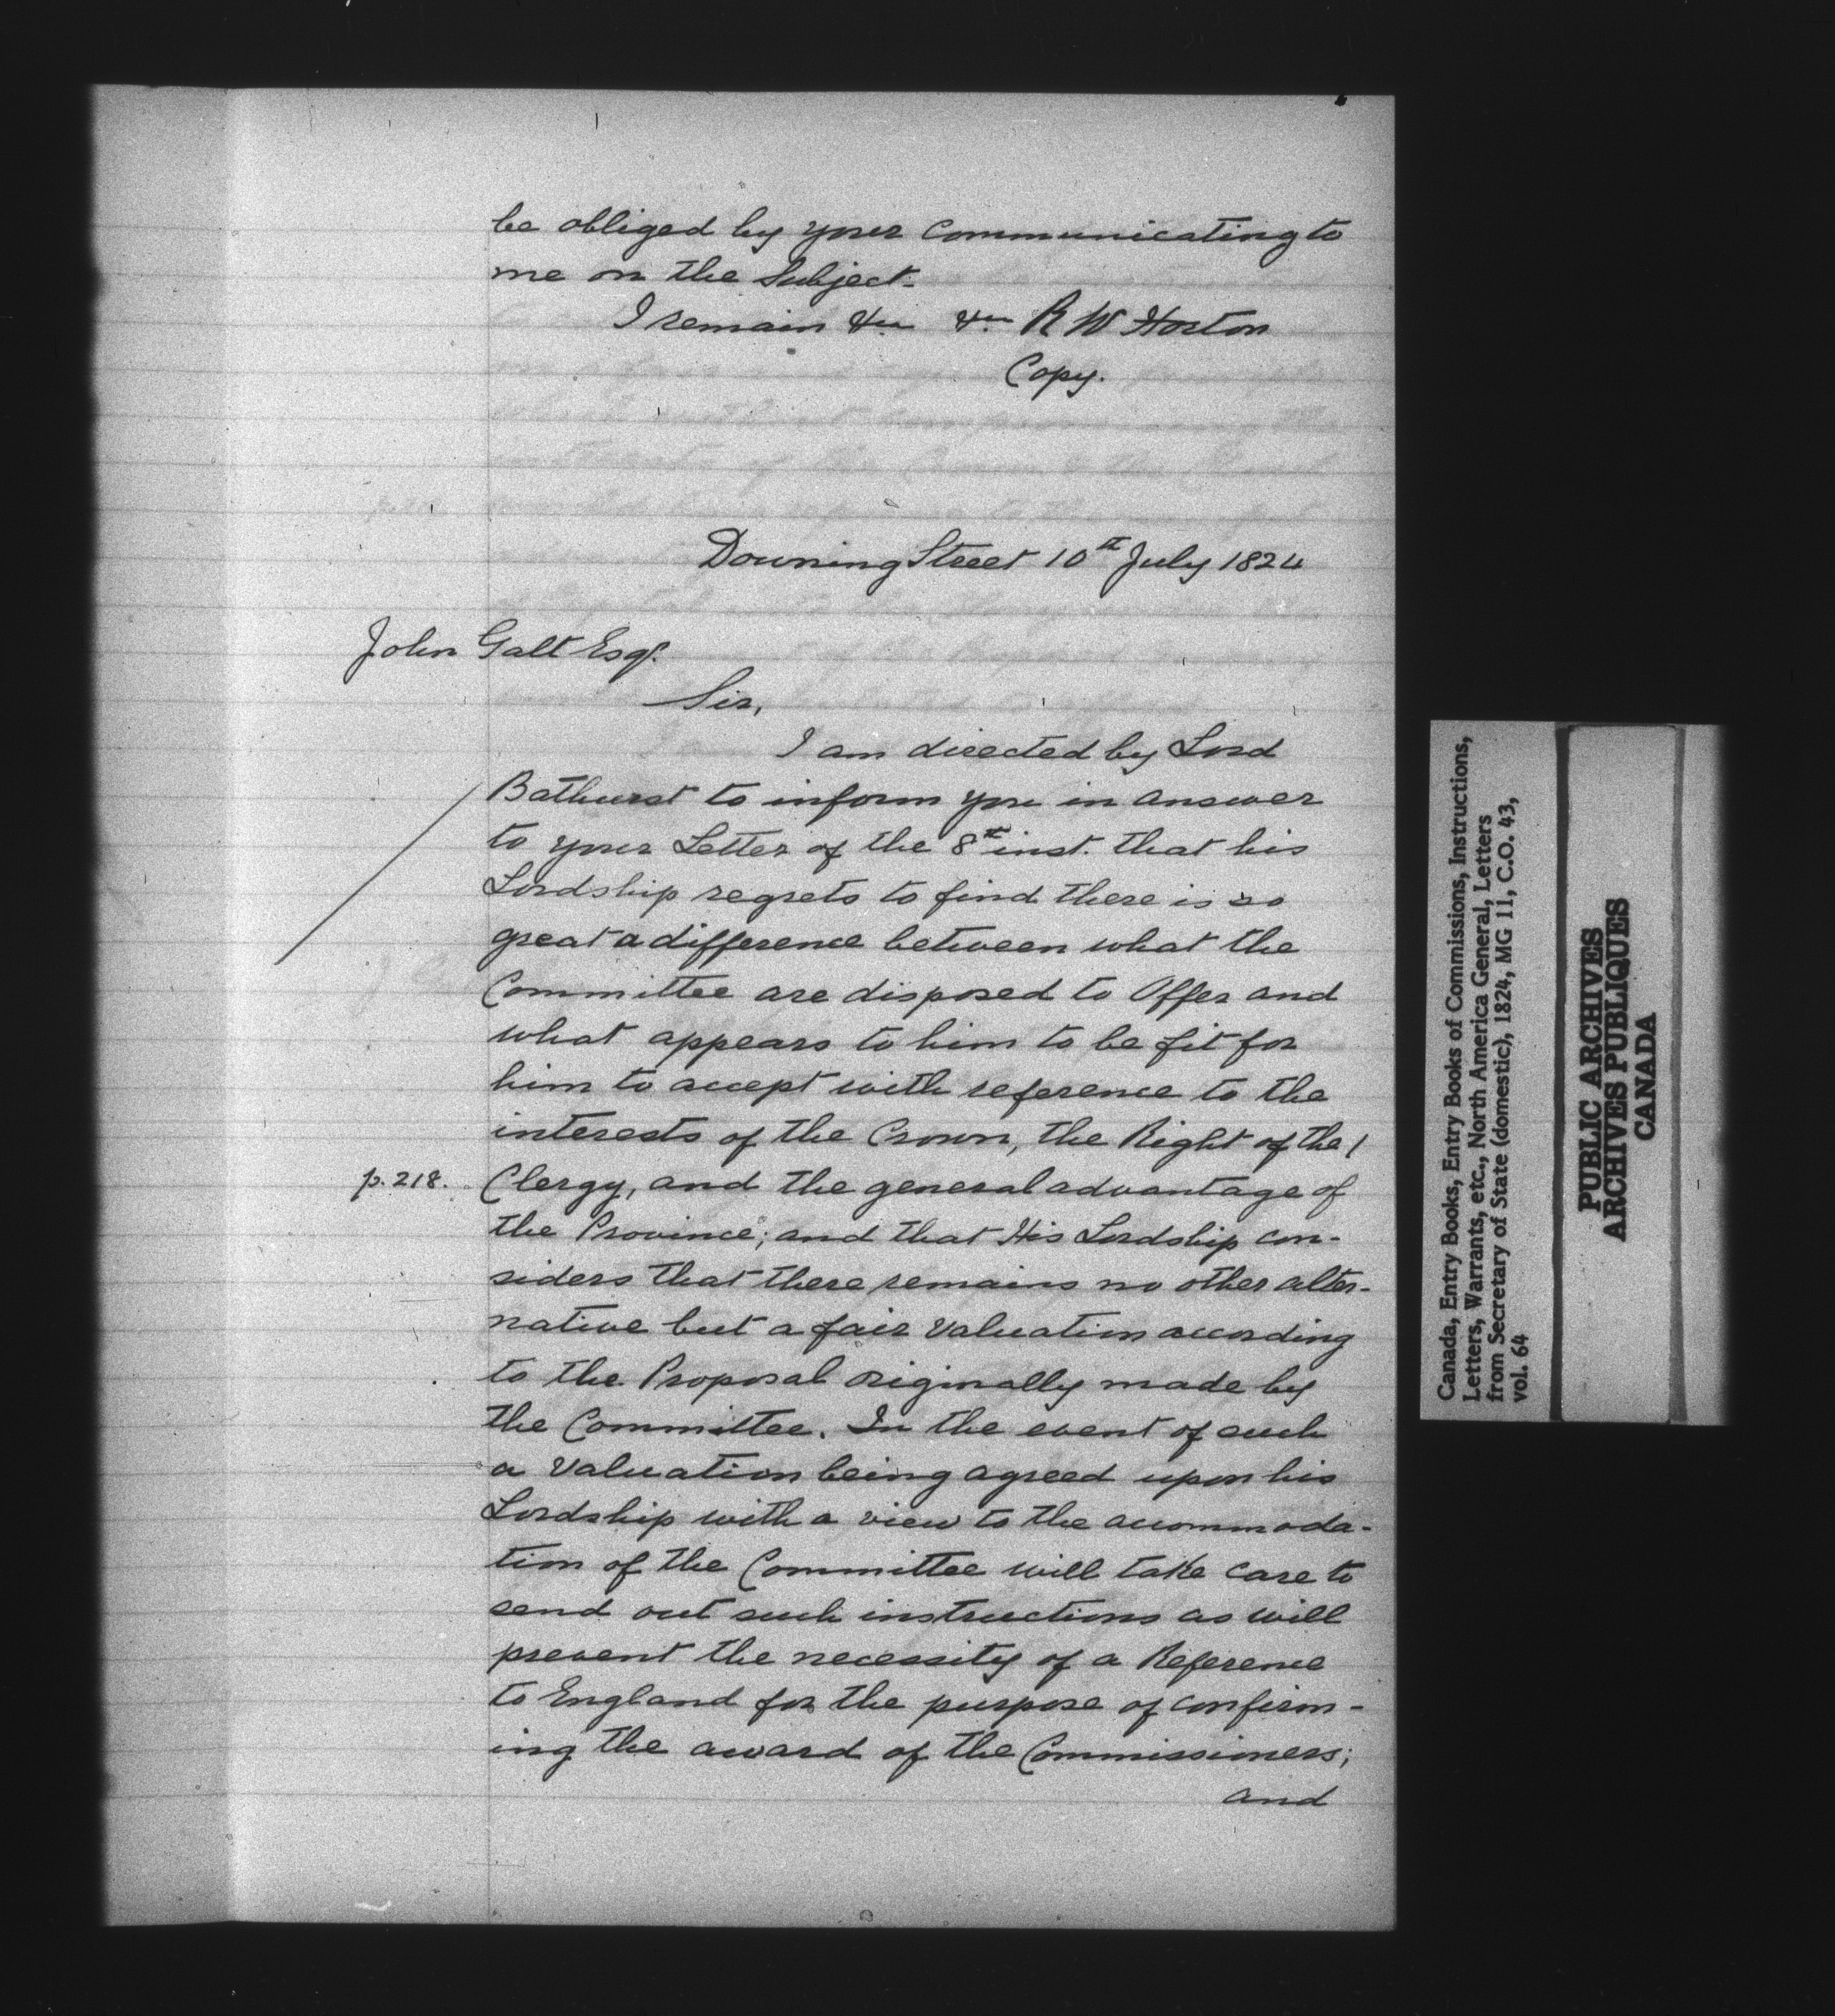 be obliged by your Communicating to
me on the Subject.
I remain &c &c R W Horton
Copy.
Downing Street 10th July 1824
John Galt Esqr.
Sir,
I am directed by Lord
Bathurst to inform you in answer
to your Letter of the 8th inst. that his
Lordship regrets to find there is so
great a difference between what the
Committee are disposed to Offer and
what appears to him to be fit for
him to accept with reference to the
interests of the Crown, the Right of the /
p. 218. Clergy, and the general advantage of
the Province; and that His Lordship con-
siders that there remains no other alter-
native but a fair Valuation according
to the Proposal originally made by
the Committee. In the event of such
a Valuation being agreed upon his
Lordship with a view to the accommoda-
tion of the Committee will take care to
send out such instructions as will
prevent the necessity of a Reference
to England for the purpose of confirm-
ing the award of the Commissioners;
and
Canada, Entry Books, Entry Books of Commissions, Instructions,
Letters, Warrants, etc., North America General, Letters
from Secretary of State (domestic), 1824, MG 11, C.O. 43,
vol. 64
PUBLIC ARCHIVES
ARCHIVES PUBLIQUES
CANADA